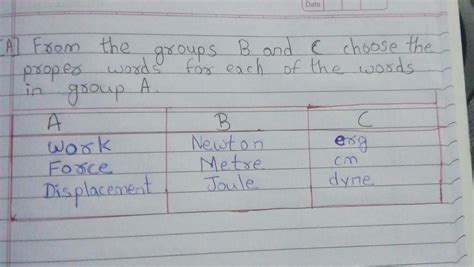 Date
A] From the groups B and C choose the
proper words for each of the words
in group A.
A B C
Work Newton erg
Force Metre cm
Displacement Joule dyne